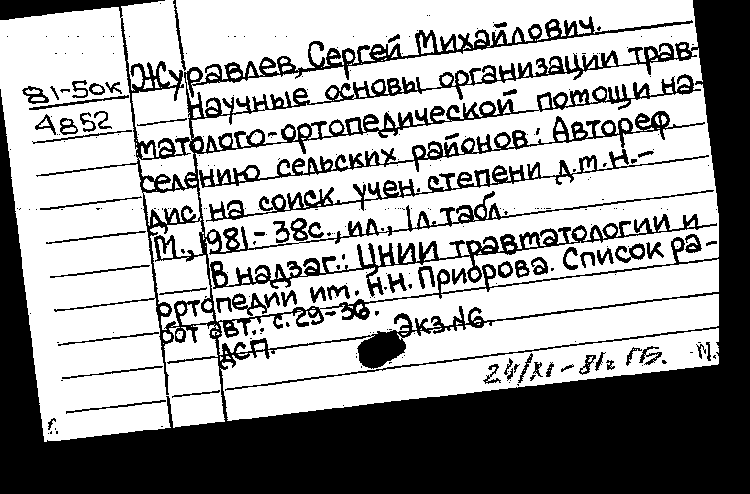 81-50к
4852
Журавлев, Сергей Михайлович.
Научные основы организации трав-
матолого-ортопедической помощи на-
селению сельских районов: Автореф.
дис. на соиск. учен. степени д.м.н.-
М., 1981.- 38с., ил., 1л. табл.
В надзаг.: ЦНИИ травматологии и
ортопедии им. Н.Н. Приорова. Список ра-
бот авт.: с.29-36.
ДСП. Экз.№6.
24/XI-81г ГБ.